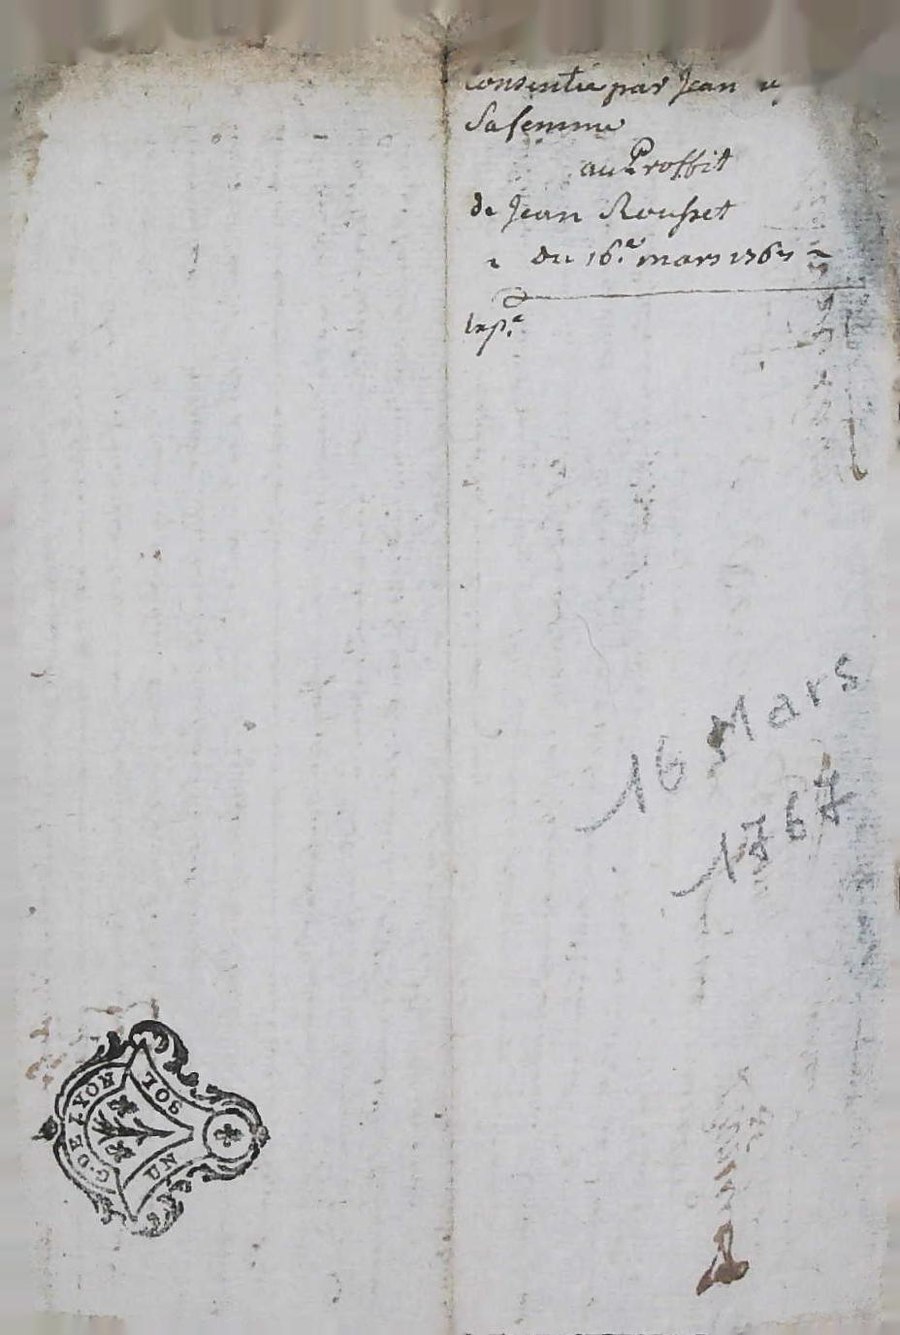 consentie par Jean
Sa femme
au Proffit
de Jean Rousset
du 16.e mars 1767
Exp.e
16 Mars
1767
G. DE LYON
UN SOL